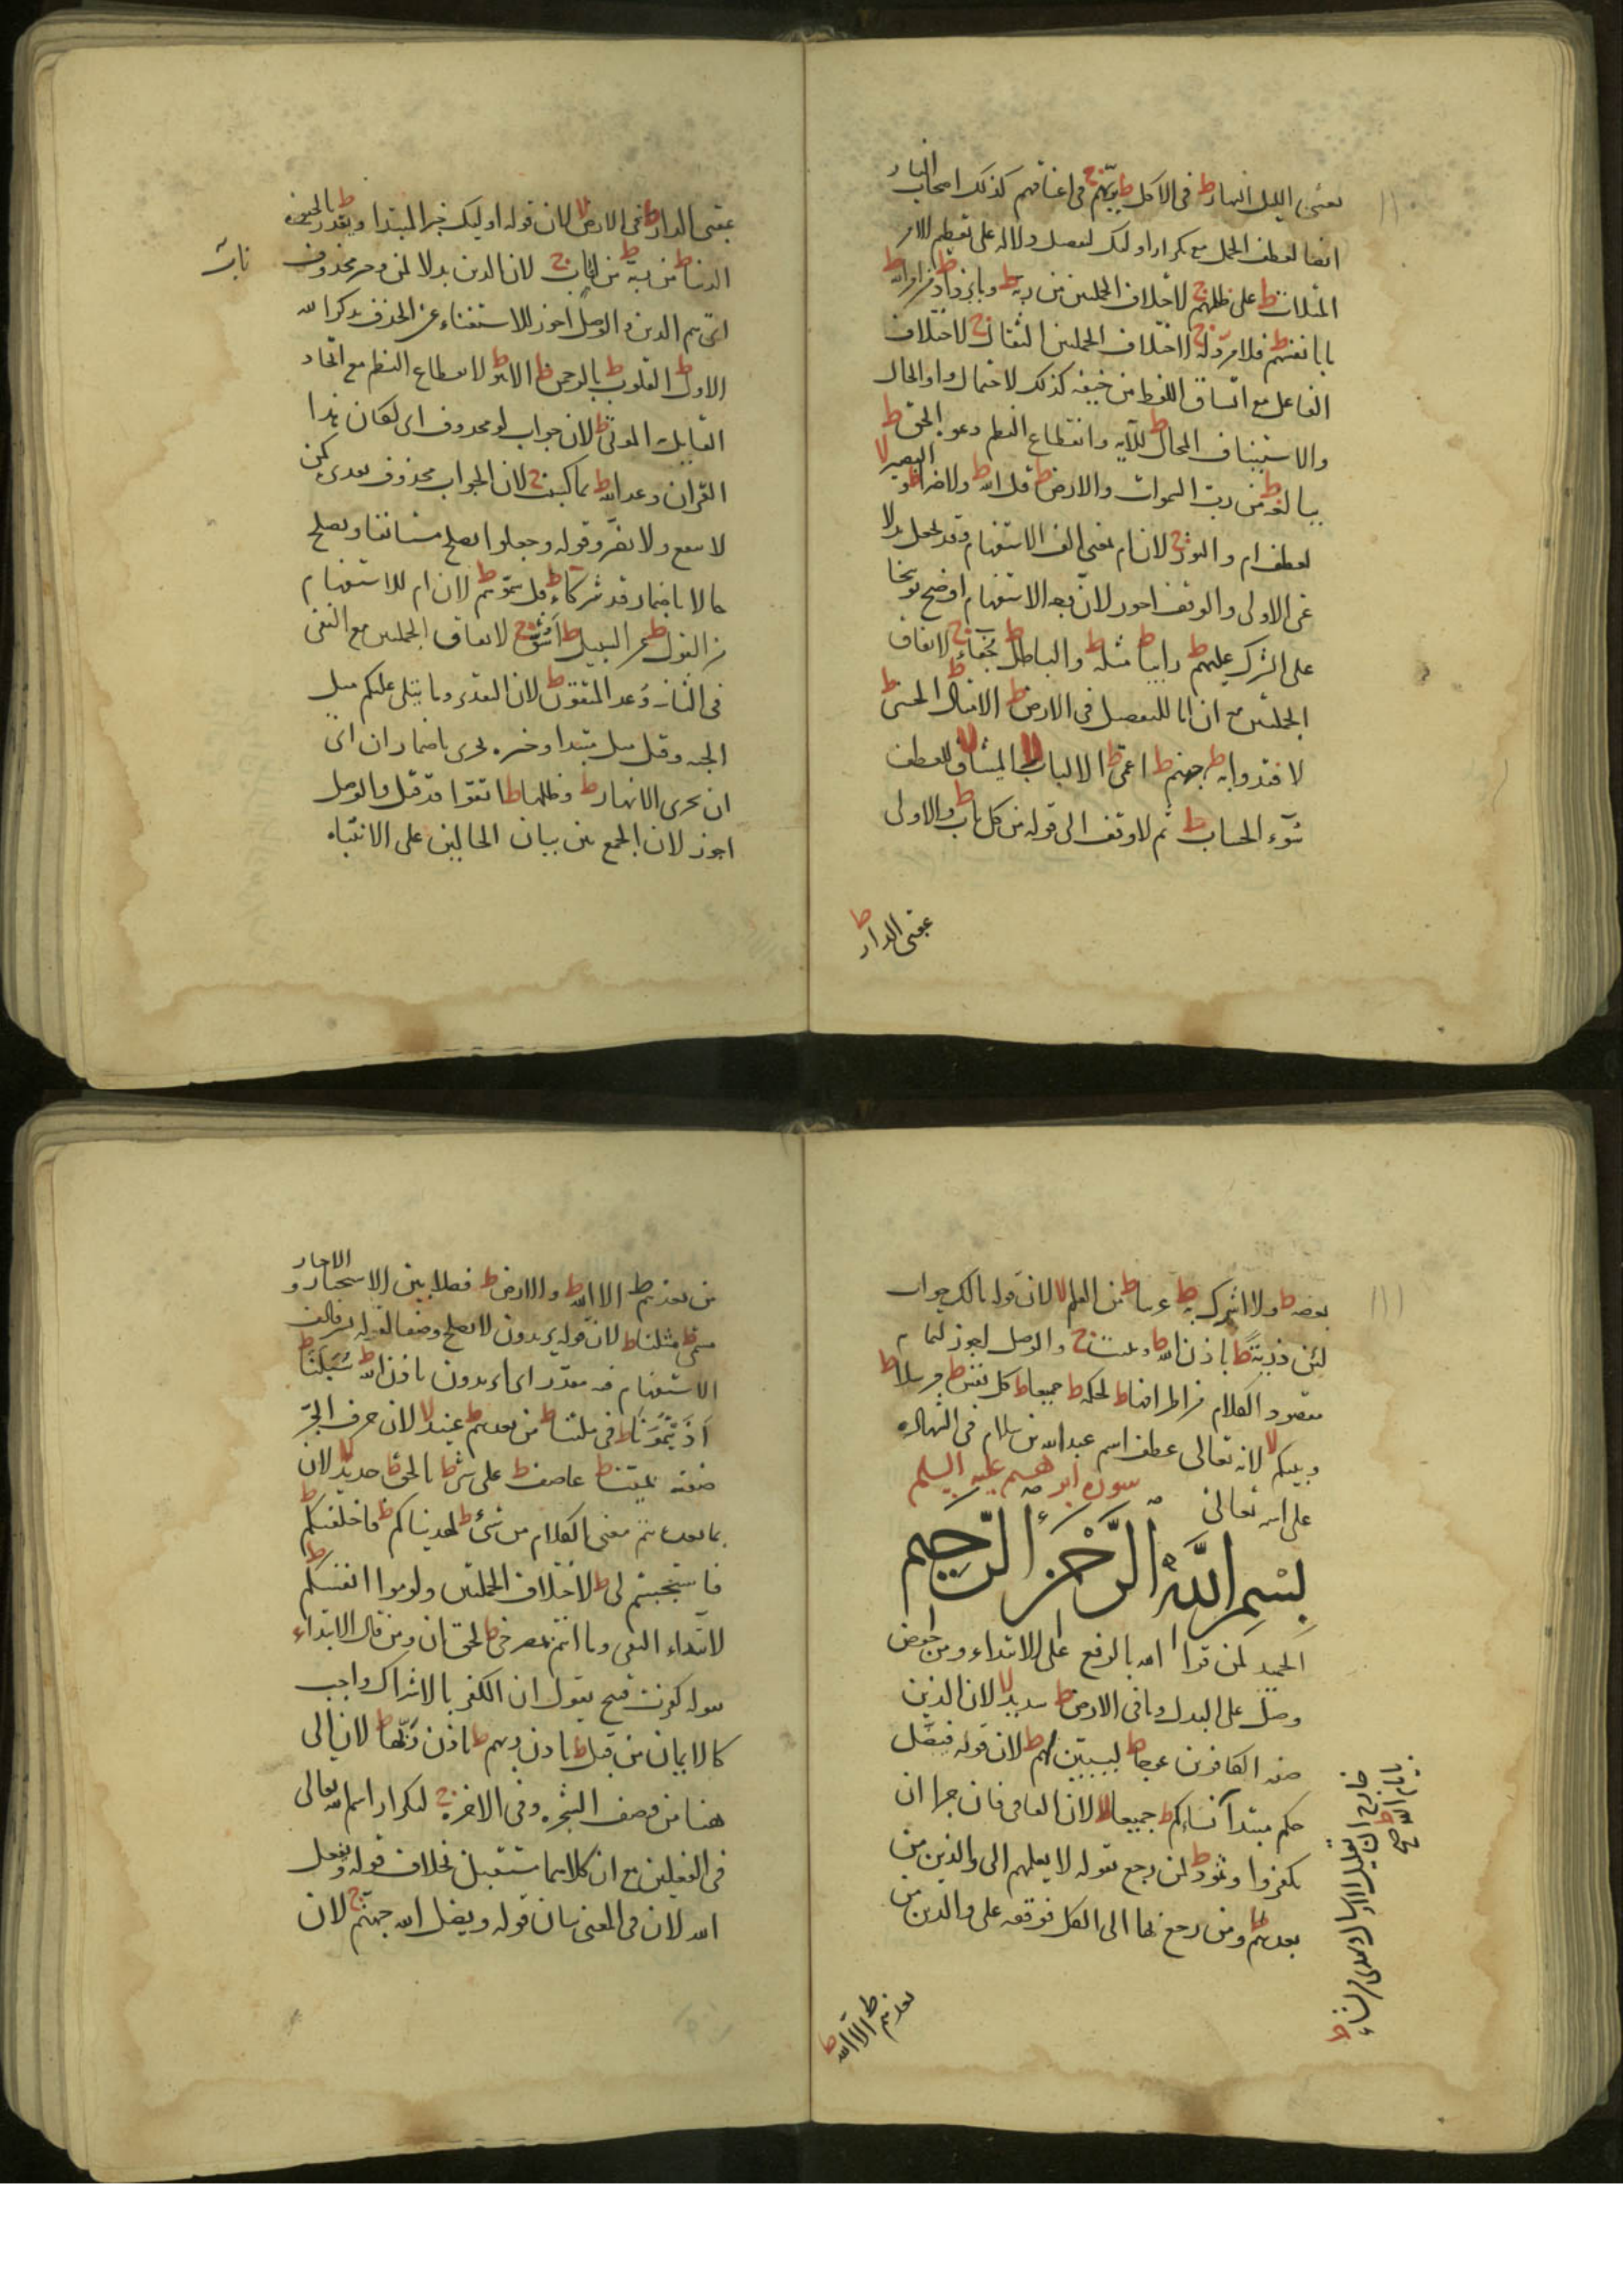 يغشى الليل النهار ط فى الاكل ط بربهم ج فى اعناقهم كذلك اصحاب النار
ايضا لعطف الجمل مع تكرار اولئك لتفصل دلالة على تعظيم الامر
المثلات ط على ظلمهم ج لاختلاف الجملتين من ربه ط وما تزداد ط من امر الله ط
ما بانفسهم ط فلا مرد له ج لاختلاف الجملتين الثقال ج لاختلاف
الفاعل مع اتساق اللفظ من خيفته كذلك لاحتمال واو الحال
والاستيناف المحال ط للآية وانقطاع النظم دعوة الحق ط
ببالغه ط من رب السموات والارض ط قل الله ط ولا ضرا ط والبصير لا
لعطف ام والنور ج لان ام بمعنى الف الاستفهام وقد تجعل بدلا
عن الاولى والوقف اجوز لان بعد الاستفهام اوضح توبيخا
على الشرك عليهم ط رابيا ط مثله ط والباطل ط جفاء ج لاتفاق
الجملتين مع ان اما للتفصيل فى الارض ط الامثال الحسنى ط
لافتدوا به ط جهنم ط اعمى ط الالباب لا الميثاق لا للعطف
سوء الحساب ط ثم لا وقف الى قوله من كل باب ط والاولى
عقبى الدار ط
عقبى الدار ط فى الارض لا لان قوله اولئك خبر المبتدا ويقدر ط بالحيوة
الدنيا ط من ربه ط من اناب ج لان الذين بدلا لمن وخبر محذوف
اى هم الذين والوصل اجوز للاستغناء عن الحذف بذكر الله
الاول ط القلوب ط بالرحمن ط الا هو ط لانقطاع النظم مع اتحاد
القايل الموتى ط لان جواب لو محذوف اى لكان هذا
القران وعد الله ط بما كسبت ج لان الجواب محذوف تقديره كمن
لا يسمع ولا يضر وقوله وجعلوا يصلح مستانفا ويصلح
حالا باضمار قد شركاء ط قل سموهم ط لان ام للاستفهام
من القول ط عن السبيل ط اشق ج لاتفاق الجملتين مع النفى
فى الثانى وعد المتقون ط لان التقدير وما يتلى عليكم مثل
الجنة وقيل مثل مبتدا وخبره تجرى باضمار ان اى
ان تجرى الانهار ط وظلها ط اتقوا قد قيل والوصل
اجوز لان الجمع بين بيان الحالين على الانتباه
بعضه ط ولا اشرك به ط عربيا ط من العلم لا لان قوله مالك جواب
لئن وذرية ط باذن الله ط ويثبت ج والوصل اجوز لتمام
مقصود الكلام من اطرافها ط لحكمه ط جميعا ط كل نفس ط مرسلا ط
وبينكم لا لانه تعالى عطف اسم عبد الله بن سلام فى الشهادة
على اسمه تعالى سورة ابرهيم عليه السلم
بسم الله الرحمن الرحيم
الحميد لمن قرا الله بالرفع على الابتداء ومن خفض
وصل على البدل وما فى الارض ط شديد لا لان الذين
صفة الكافرين عوجا ط ليبين لهم ط لان قوله فيضل
حكم مبتدا نساءكم ط جميعا لا لان الفا فى فان جزا ان
تكفروا وثمود ط لمن رجع بقوله لا يعلمهم الى والذين من
بعدهم ومن رجع بها الى الكل فوقفه على والذين من
بعدهم ط الا الله ط
من بعدهم ط الا الله ط والارض ط فصلا بين الاستخبار والاخبار
مسمى ط مثلنا ط لان قوله يريدون لا يصلح وصفا
الاستفهام فيه مقدر اى اتريدون باذن الله ط سبلنا ط
اذيتمونا ط فى ملتنا ط من بعدهم ط عنيد لا لان حرف الجر
صفته بميت ط عاصف ط على شئ ط بالحق ط جديد لا لان
بما بعده يتم معنى الكلام من شئ ط لهديناكم ط فاخلفتكم ط
فاستجبتم لى ط لاختلاف الجملتين ولوموا انفسكم ط
لابتداء النفى وما انتم بمصرخى ط لحق ان ومن قال الابتداء
بقوله كفرت قبيح يقول ان الكفر بالاشراك واجب
كالايمان من قبل ط باذن ربهم ط باذن ربها ط لان الى
هنا من وصف الشجرة وفى الاخرة ج لتكرار اسم الله تعالى
فى الفعلين مع ان كلاهما مستقبل بخلاف قوله ويفعل
الله لان فى المعنى بيان قوله ويضل الله جهنم ج لان